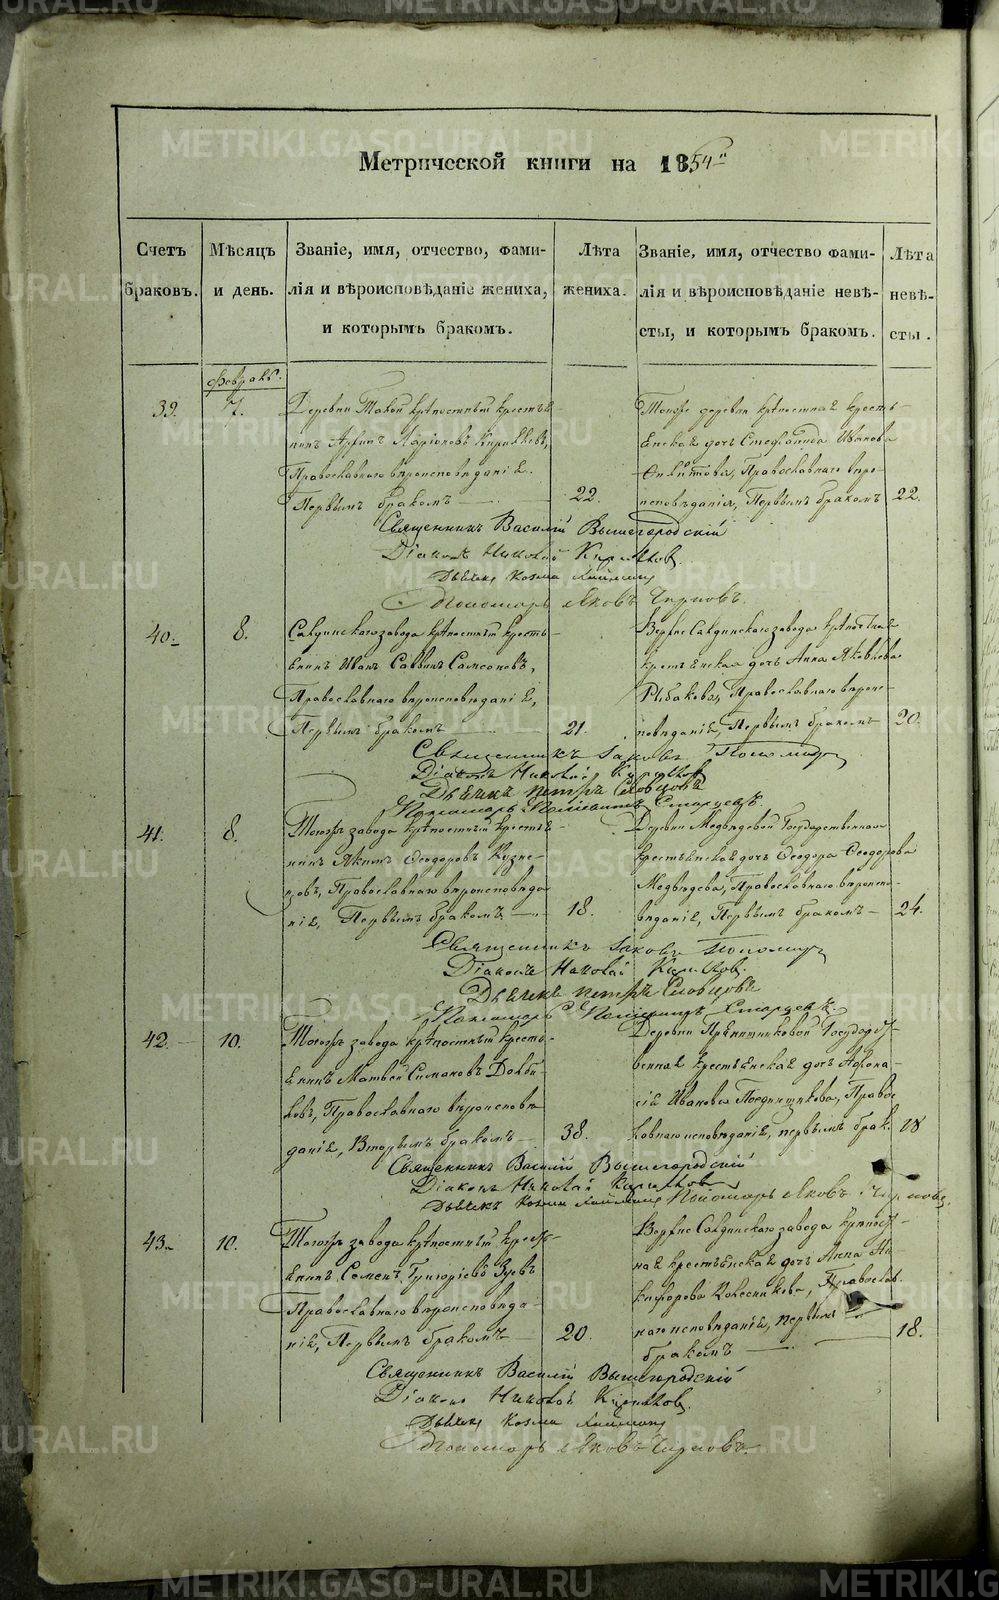 METRIKI.GASO-URAL.RU
Метрической книги на 1854й
Счетъ браковъ.
Мѣсяцъ и день.
Званіе, имя, отчество, фами-
лія и вѣроисповѣданіе жениха,
и которымъ бракомъ.
Лѣта жениха.
Званіе, имя, отчество фами-
лія и вѣроисповѣданіе невѣ-
сты, и которымъ бракомъ.
Лѣта невѣ-
сты.
февраль.
39.
7.
Деревни крѣпостный кресть
нинъ Ларіоновъ
Православнаго вѣроисповѣданія.
Первымъ бракомъ
22.
Тоюже деревни крѣпостная кресть-
янская дочь Степанида Иванова
Православнаго вѣро-
исповѣданія, Первымъ бракомъ
22.
Священникъ Василій Вышегородскій
Діаконъ Николай
Дьячекъ Козма
Пономарь Яковъ Черновъ.
40.
8.
завода крѣпостный кресть-
янинъ Иванъ Саввинъ Самсоновъ,
Православнаго вѣроисповѣданія,
Первымъ бракомъ
21.
завода крѣпостная
крестьянская дочь Анна Яковлева
Рыбакова, Православнаго вѣроис-
повѣданія, Первымъ бракомъ
20.
Священникъ Іаковъ
Діаконъ Николай
Дьячекъ Петръ Словцовъ
Пономарь Старцевъ.
41.
8.
завода крѣпостный кресть
нинъ Якимъ Ѳеодоровъ Кузне-
цовъ, Православнаго вѣроисповѣда
нія, Первымъ бракомъ
18.
Деревни Медвѣдевой Государственная
крестьянская дочь Ѳеодора Ѳеодорова
Медвѣдева, Православнаго вѣроиспо-
вѣданія, Первымъ бракомъ
24.
Священникъ Іаковъ
Діаконъ Николай
Дьячекъ Петръ Словцовъ
Пономарь Старцевъ.
42.
10.
завода крѣпостный кресть-
янинъ Матвей Симановъ
Православнаго вѣроисповѣ
данія, Вторымъ бракомъ
38.
Деревни Государст-
венная крестьянская дочь Афона-
сія Иванова Правос
лавнаго исповѣданія, первымъ брак.
28
Священникъ Василій Вышегородскій
Діаконъ Николай
Дьячекъ Козма
Пономарь Яковъ Черновъ.
43.
10.
завода крѣпостный кресть-
янинъ Семенъ Григорьевъ Зуевъ
Православнаго вѣроисповѣда-
нія, Первымъ бракомъ
20.
завода крѣпост-
ная крестьянская дочь Анна Ни-
кифорова Колесникова, Православ.
наго исповѣданія, первымъ
бракомъ
18.
Священникъ Василій Вышегородскій
Діаконъ Николай
Дьячекъ Козма
Пономарь Яковъ Черновъ.